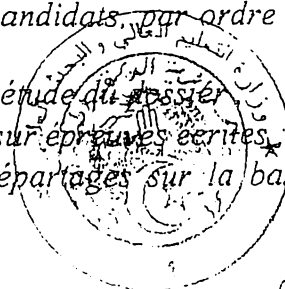 andidats, par ordre
étude du dossier,
sur épreuves écrites,
épartagés sur la ba
وزارة التعليم العالي و البحث